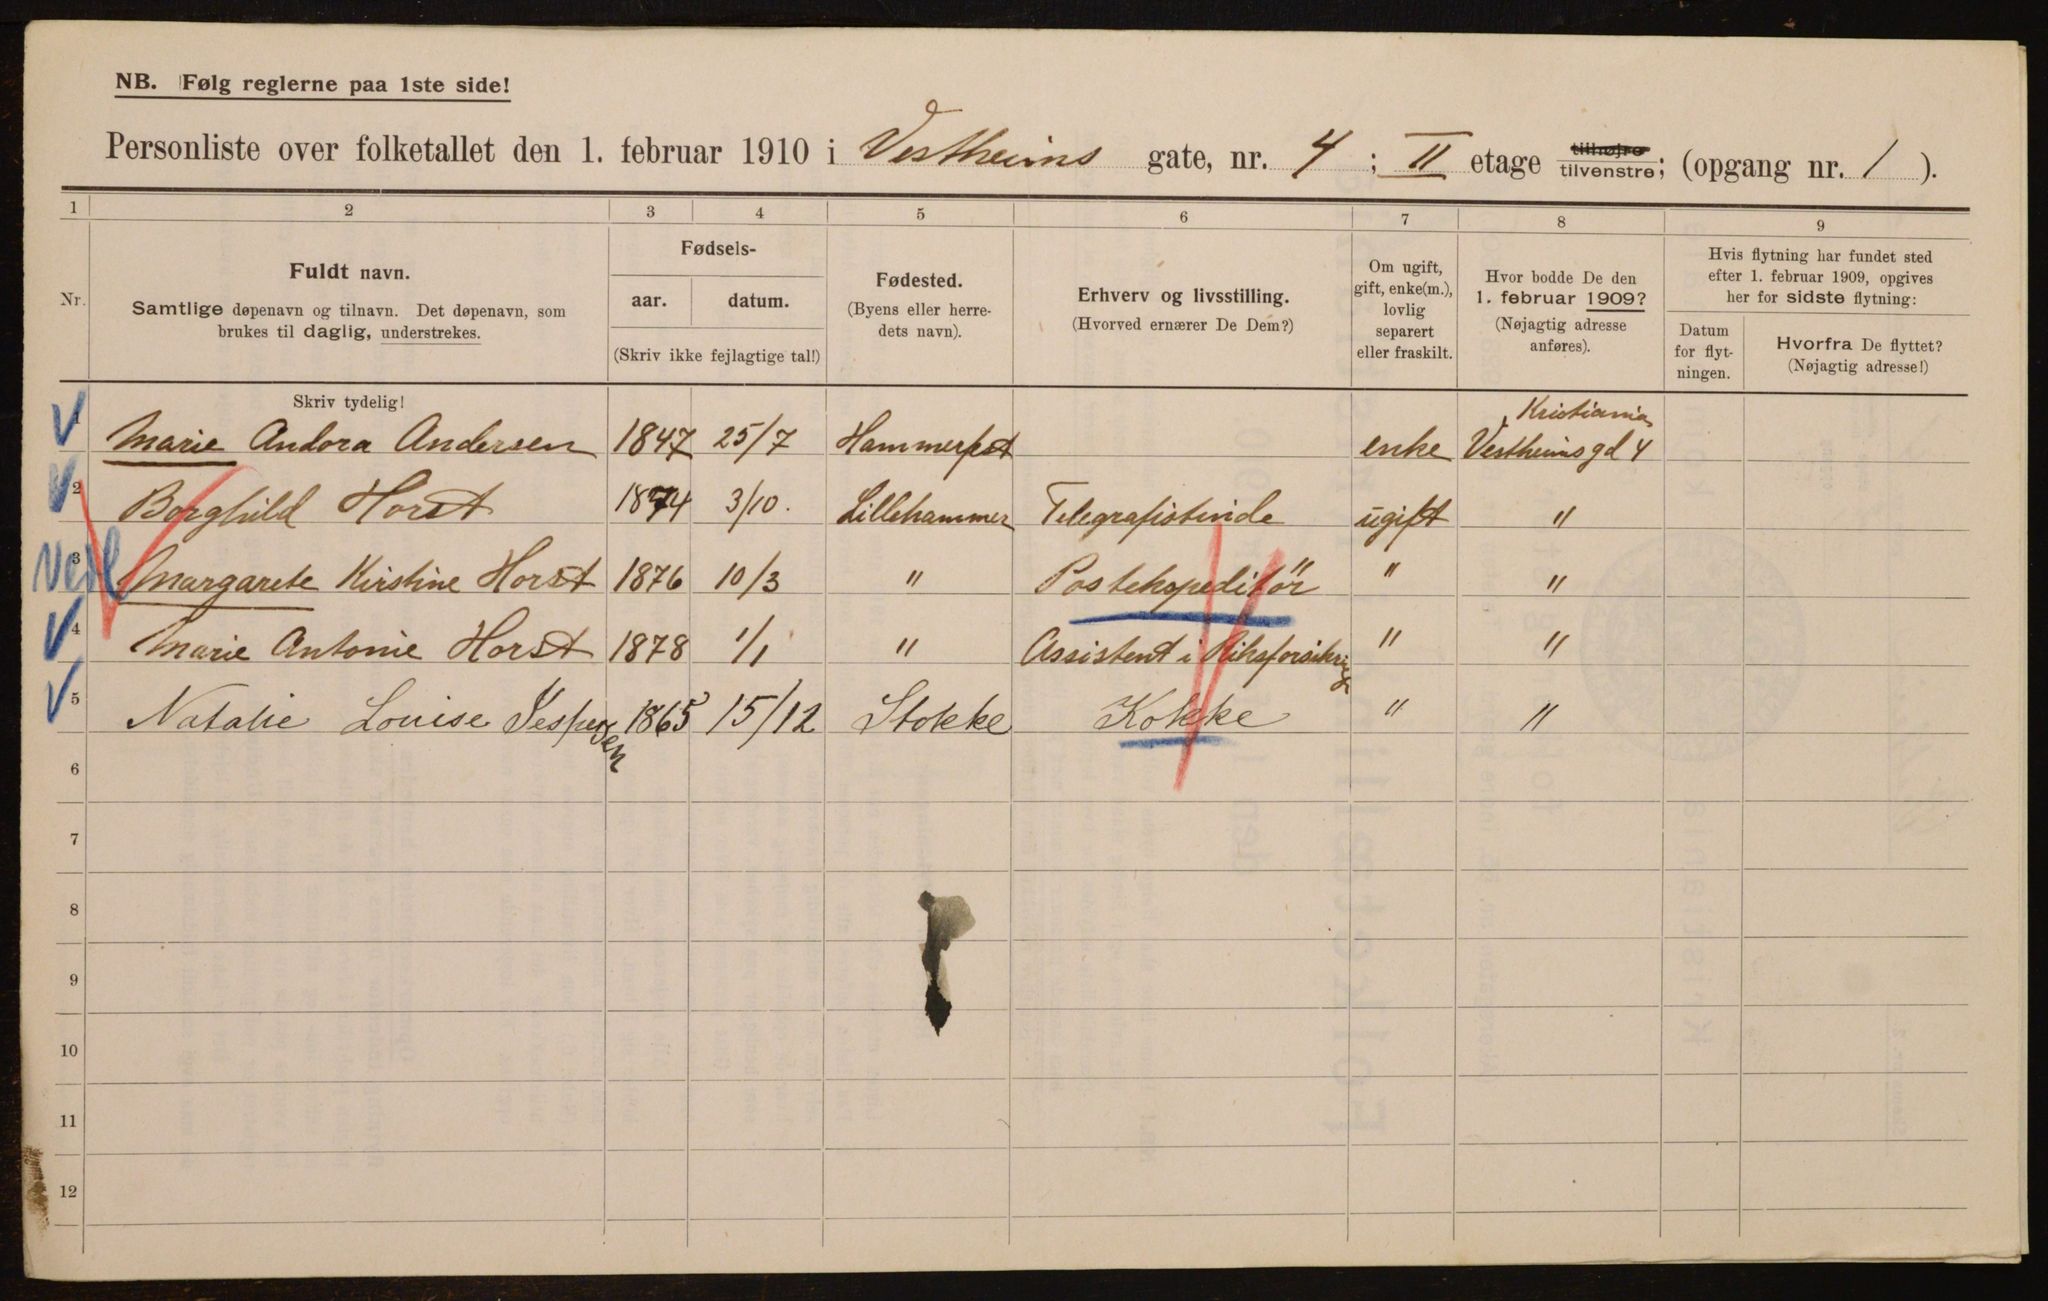 NB. Følg reglerne paa 1ste side!
Personliste over folketallet den 1. februar 1910 i Vestheims gate, nr. 4 ; II etage tilhøjre tilvenstre; (opgang nr. 1 ).
1 2 3 4 5 6 7 8 9
Nr.
Fuldt navn.
Samtlige døpenavn og tilnavn. Det døpenavn, som
brukes til daglig, understrekes.
Fødsels-
aar. datum.
(Skriv ikke fejlagtige tal!)
Fødested.
(Byens eller herre-
dets navn).
Erhverv og livsstilling.
(Hvorved ernærer De Dem?)
Om ugift,
gift, enke(m.),
lovlig
separert
eller fraskilt.
Hvor bodde De den
1. februar 1909?
(Nøjagtig adresse
anføres).
Hvis flytning har fundet sted
efter 1. februar 1909, opgives
her for sidste flytning:
Datum
for flyt-
ningen.
Hvorfra De flyttet?
(Nøjagtig adresse!)
Skriv tydelig!
1 Marie Andora Andersen 1847 25/7 Hammerfest enke Kristiania Vestheimsgd 4
2 Borghild Horst 1874 3/10. Lillehammer Telegrafistinde ugift "
3 Margarete Kirstine Horst 1876 10/3 " Postekspeditör " "
4 Marie Antonie Horst 1878 1/1 " Assistent i Riksforsikring " "
5 Natalie Louise Jespersen 1865 15/12 Stokke Kokke " "
6
7
8
9
10
11
12